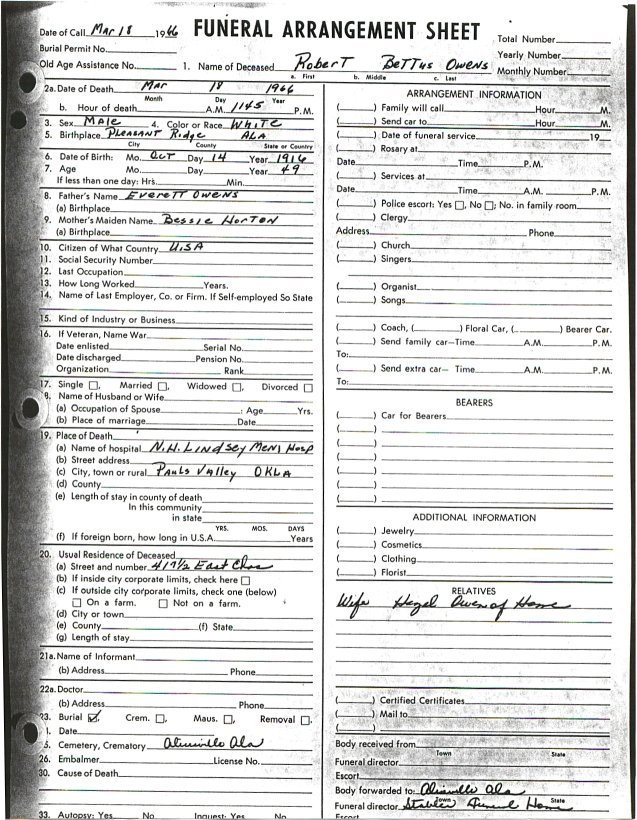 FUNERAL ARRANGEMENT SHEET
Date of Call Mar 18 1966
Burial Permit No.
Old Age Assistance No. 1. Name of Deceased Robert Bettus Owens
a. First b. Middle c. Last
Total Number
Yearly Number
Monthly Number
2a. Date of Death Mar 18 1966
Month Day Year
b. Hour of death A.M. 1145 P.M.
3. Sex Male 4. Color or Race White
5. Birthplace Pleasant Ridge ALA
City County State or Country
6. Date of Birth: Mo. Oct Day 14 Year 1916
7. Age Mo. Day Year 49
If less than one day: Hrs. Min.
8. Father's Name Everett Owens
(a) Birthplace
9. Mother's Maiden Name Bessie Horton
(a) Birthplace
10. Citizen of What Country U.S.A
11. Social Security Number
12. Last Occupation
13. How Long Worked Years.
14. Name of Last Employer, Co. or Firm. If Self-employed So State
15. Kind of Industry or Business
16. If Veteran, Name War
Date enlisted Serial No.
Date discharged Pension No.
Organization Rank
17. Single ☐, Married ☐, Widowed ☐, Divorced ☐
8. Name of Husband or Wife
(a) Occupation of Spouse : Age Yrs.
(b) Place of marriage Date
19. Place of Death
(a) Name of hospital N.H. Lindsey Meml Hosp
(b) Street address
(c) City, town or rural Pauls Valley OKLA
(d) County
(e) Length of stay in county of death
In this community
in state
YRS. MOS. DAYS
(f) If foreign born, how long in U.S.A. Years
20. Usual Residence of Deceased
(a) Street and number 417½ East
(b) If inside city corporate limits, check here ☐
(c) If outside city corporate limits, check one (below)
☐ On a farm. ☐ Not on a farm.
(d) City or town
(e) County (f) State
(g) Length of stay
21a. Name of Informant
(b) Address Phone
22a. Doctor
(b) Address Phone
23. Burial ☑, Crem. ☐, Maus. ☐, Removal ☐.
. Date
5. Cemetery, Crematory Aliceville Ala
26. Embalmer License No.
30. Cause of Death
33. Autopsy: Yes No Inquest: Yes No
ARRANGEMENT INFORMATION
( ) Family will call Hour M.
( ) Send car to Hour M.
( ) Date of funeral service 19
( ) Rosary at
Date Time P.M.
( ) Services at
Date Time A.M. P.M.
( ) Police escort: Yes ☐, No ☐; No. in family room
( ) Clergy
Address Phone
( ) Church
( ) Singers
( ) Organist
( ) Songs
( ) Coach, ( ) Floral Car, ( ) Bearer Car.
( ) Send family car—Time A.M. P.M.
To:
( ) Send extra car— Time A.M. P.M.
To:
BEARERS
( ) Car for Bearers
( )
( )
( )
( )
( )
( )
( )
ADDITIONAL INFORMATION
( ) Jewelry
( ) Cosmetics
( ) Clothing
( ) Florist
RELATIVES
Wife Hazel Owen of Home
( ) Certified Certificates
( ) Mail to
( )
Body received from
Town State
Funeral director
Escort
Body forwarded to: Aliceville Ala
Town State
Funeral director Funeral Home
Escort